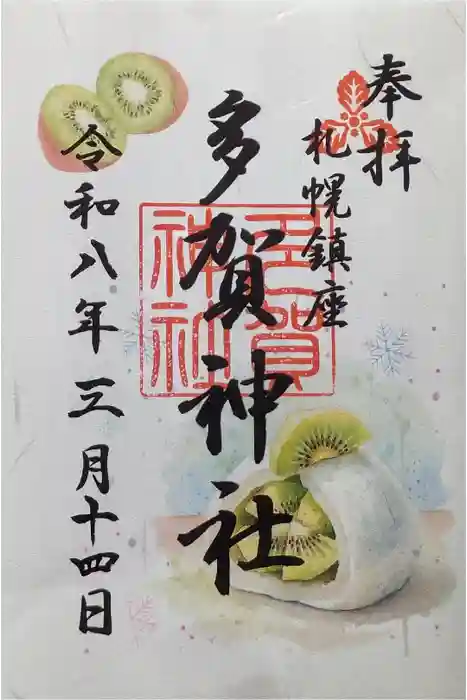 奉拝
札幌鎮座
多賀神社
多賀
神社
令和八年三月十四日